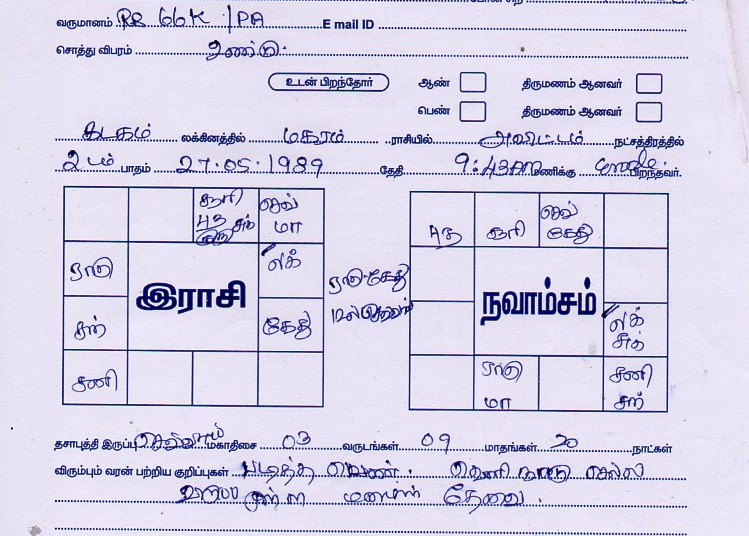 வருமானம் RS 66K / PA E mail ID
சொத்து விபரம் உண்டு.
உடன் பிறந்தோர் ஆண் திருமணம் ஆனவர்
பெண் திருமணம் ஆனவர்
கடகம் லக்கினத்தில் மகரம் ராசியில் அவிட்டம் நட்சத்திரத்தில்
2 ம் பாதம் 27.05.1989 தேதி 9:43AM மணிக்கு பிறந்தவர்.
சூரி செவ்
மா
ராகு லக்
சந் கேது
சனி
இராசி
ராகு-கேது
செவ்
சூரி கேது
லக்
ராகு சனி
மா சந்
நவாம்சம்
தசாபுத்தி இருப்பு செவ்வாய் மகாதிசை 03 வருடங்கள் 09 மாதங்கள் 20 நாட்கள்
விரும்பும் வரன் பற்றிய குறிப்புகள் படித்த பெண். வெளி நாடு செல்ல
மணமகள் தேவை.